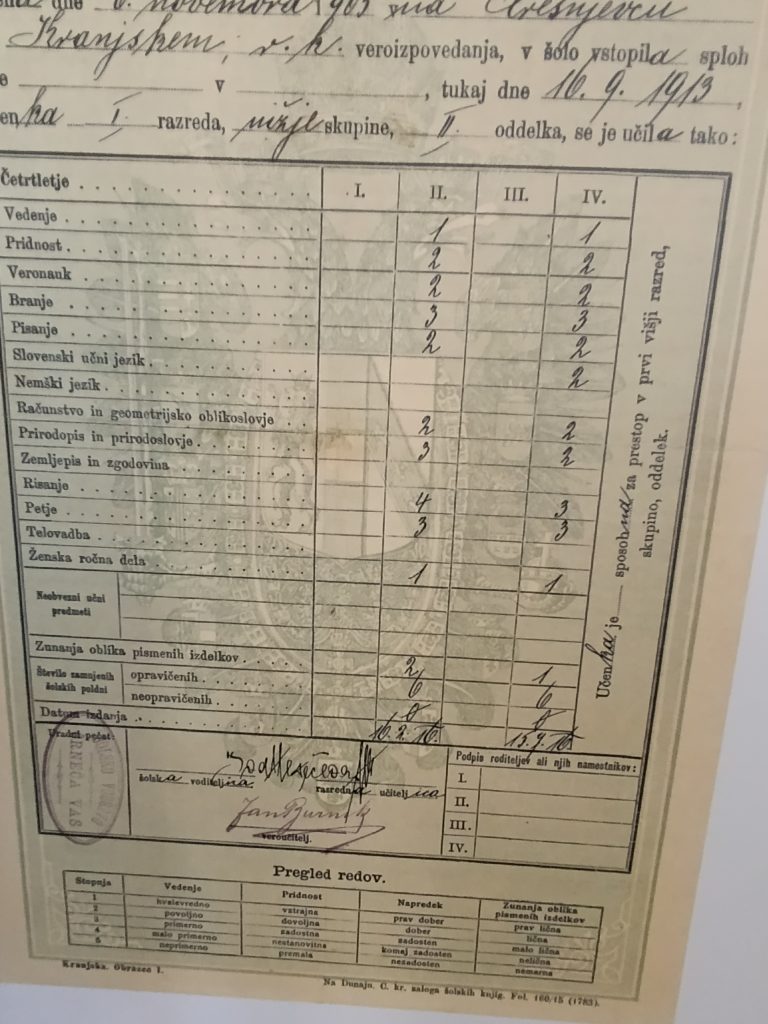 dne 6. novembra 1903 na Črešnjevcu
Kranjskem, r. k. veroizpovedanja, v šolo vstopila sploh
v , tukaj dne 16. 9. 1913,
enka I. razreda, nižje skupine, II. oddelka, se je učila tako:
Četrtletje I. II. III. IV.
Vedenje 1 1
Pridnost 2 2
Veronauk 2 2
Branje 3 3
Pisanje 2 2
Slovenski učni jezik 2
Nemški jezik
Računstvo in geometrijsko oblikoslovje 2 2
Prirodopis in prirodoslovje 3 2
Zemljepis in zgodovina
Risanje 4 3
Petje 3 3
Telovadba
Ženska ročna dela 1 1
Neobvezni učni
predmeti
Zunanja oblika pismenih izdelkov 2 1
Število zamujenih
šolskih poldni
opravičenih 6 6
neopravičenih 0 0
Datum izdanja 16. 2. 16. 15. 7. 16.
Učenka je sposobna za prestop v prvi višji razred,
skupino, oddelek.
Uradni pečat:
šolska voditeljica
razredna učiteljica
veroučitelj.
Podpis roditeljev ali njih namestnikov:
I.
II.
III.
IV.
Pregled redov.
Stopnja Vedenje Pridnost Napredek Zunanja oblika
pismenih izdelkov
1 hvalevredno vztrajna prav dober prav lična
2 povoljno dovoljna dober lična
3 primerno zadostna zadosten malo lična
4 malo primerno nestanovitna komaj zadosten nelična
5 neprimerno premala nezadosten nemarna
Kranjska. Obrazec I.
Na Dunaju. C. kr. zaloga šolskih knjig. Fol. 160/15 (1783).